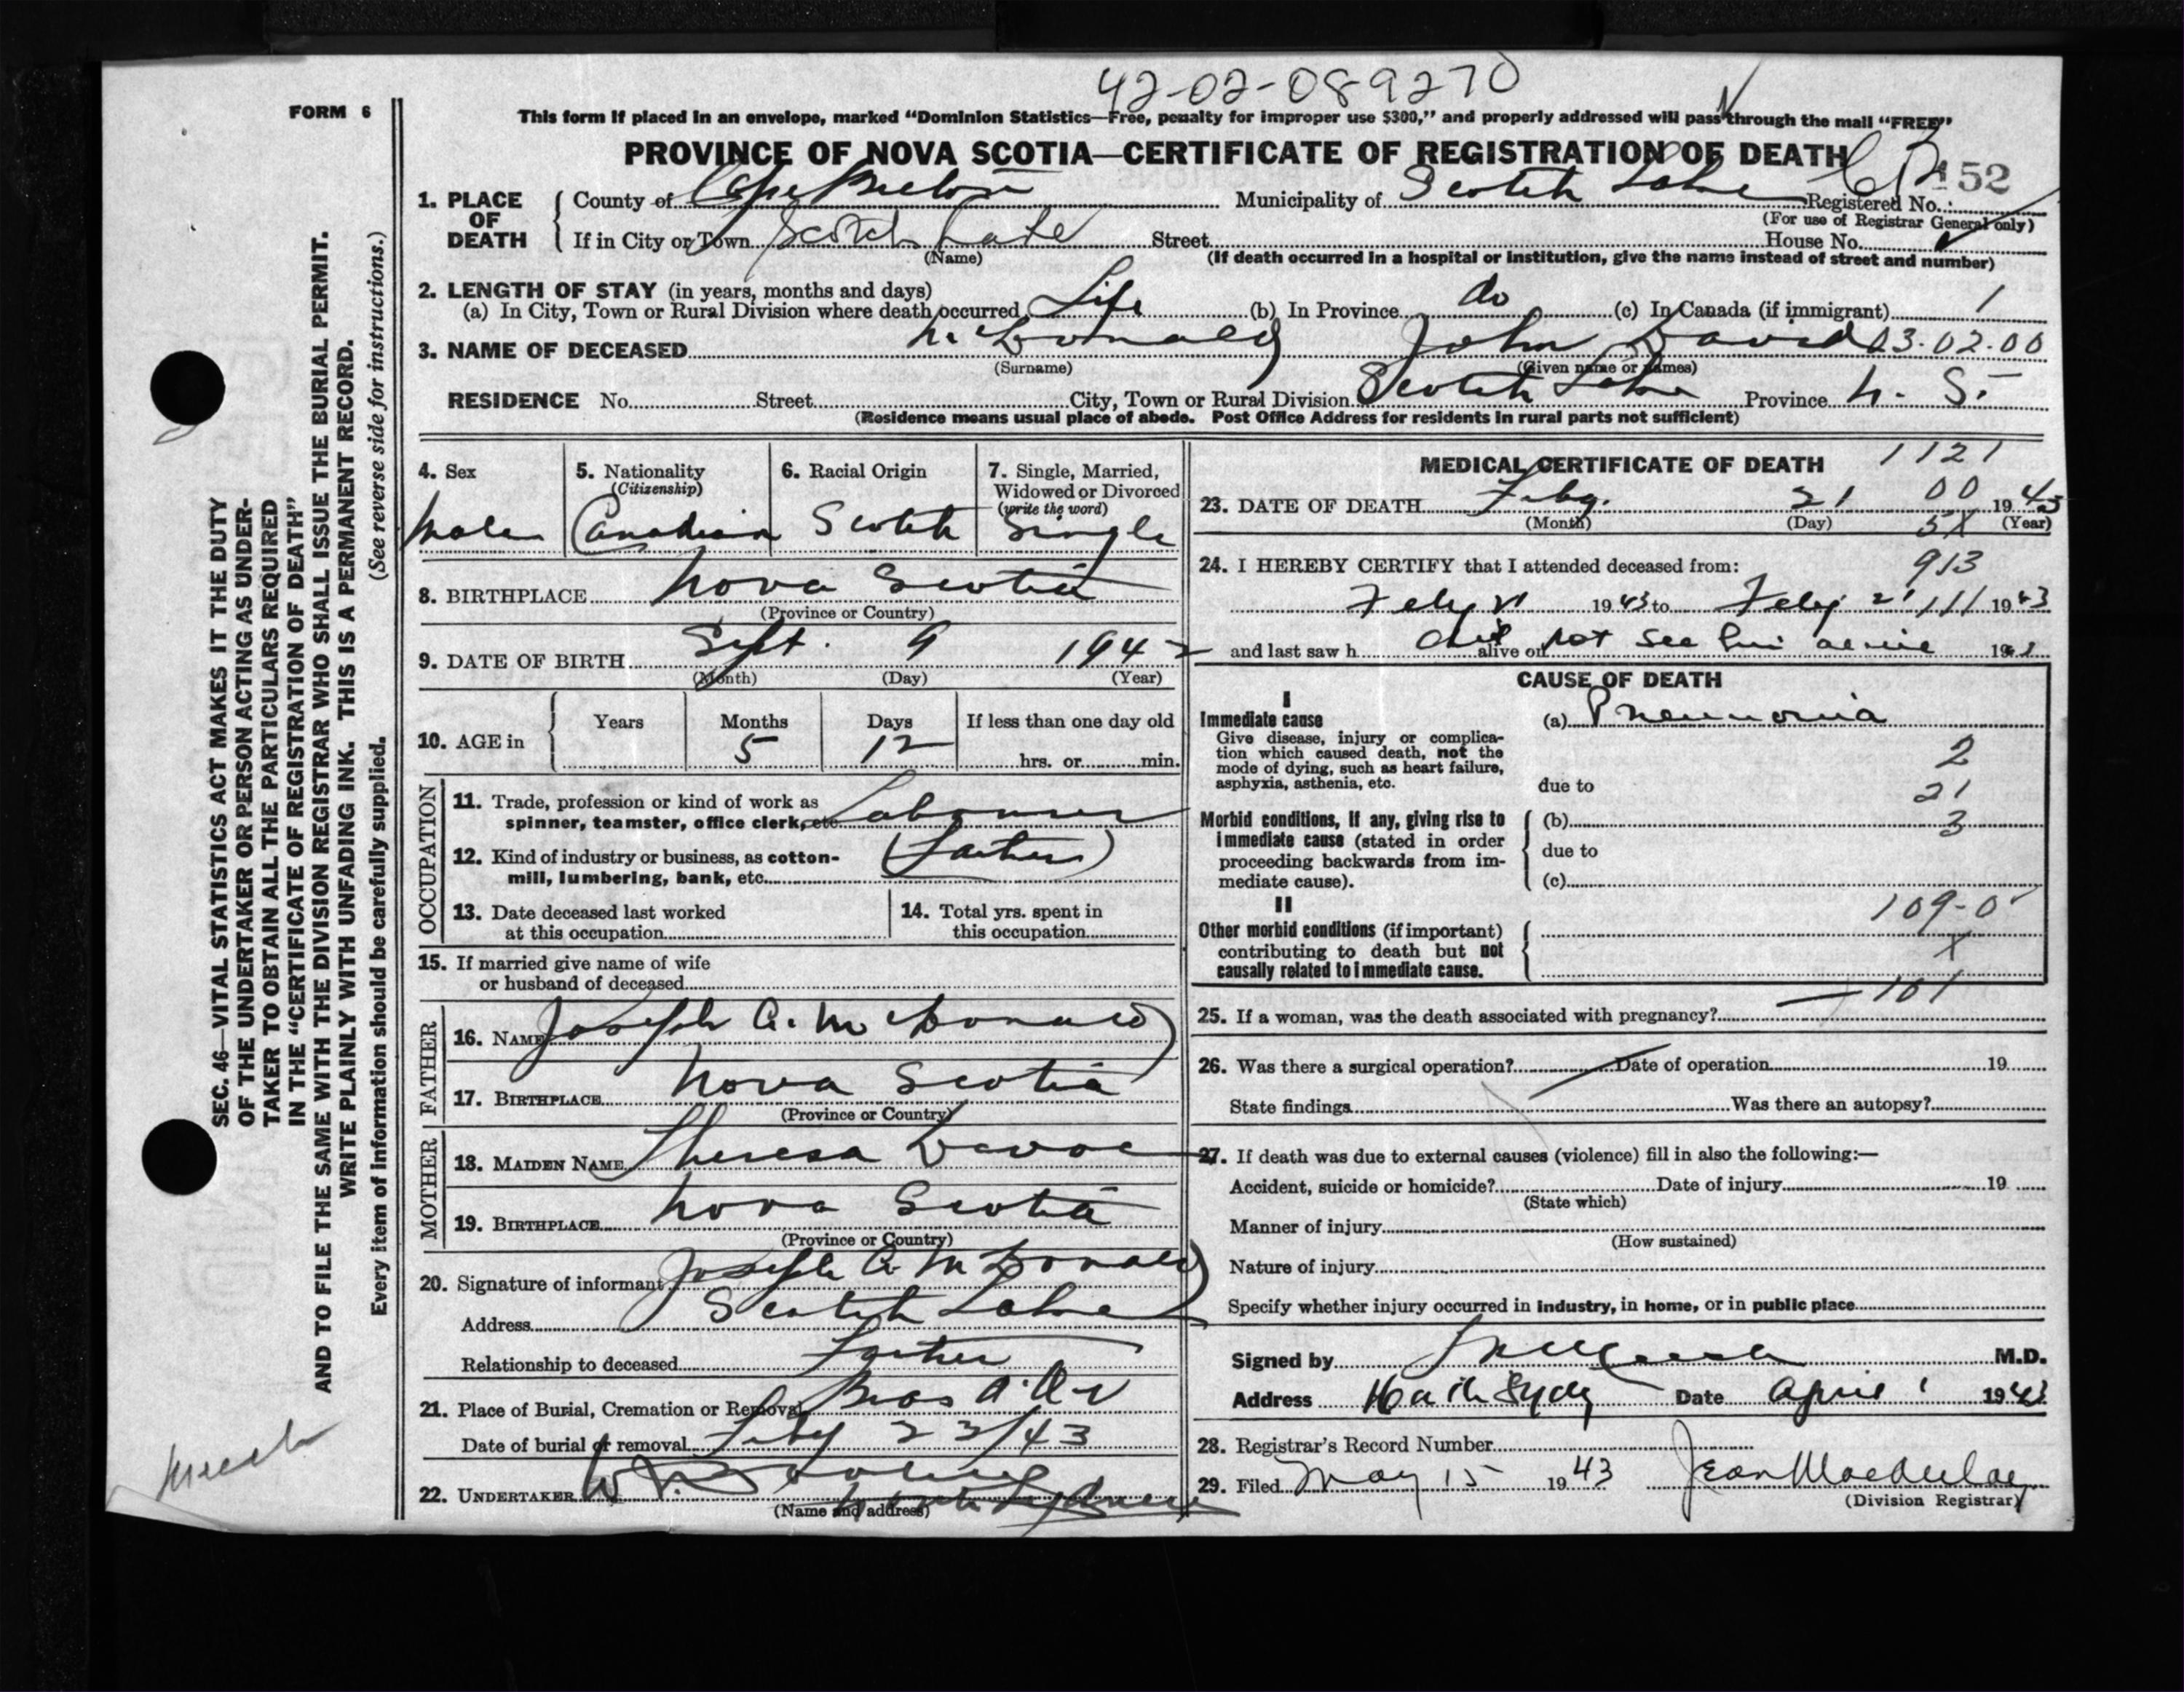 42-02-089270
FORM 6
This form if placed in an envelope, marked "Dominion Statistics—Free, penalty for improper use $300," and properly addressed will pass through the mail "FREE"
PROVINCE OF NOVA SCOTIA—CERTIFICATE OF REGISTRATION OF DEATH
1. PLACE OF DEATH { County of Cape Breton Municipality of Scotch Lake Registered No. 152
(For use of Registrar General only)
If in City or Town Scotch Lake Street House No.
(Name) (If death occurred in a hospital or institution, give the name instead of street and number)
2. LENGTH OF STAY (in years, months and days)
(a) In City, Town or Rural Division where death occurred Life (b) In Province do (c) In Canada (if immigrant) 1
3. NAME OF DECEASED McDonald John David 03-02-00
(Surname) (Given name or names)
RESIDENCE No. Street City, Town or Rural Division Scotch Lake Province N. S.
(Residence means usual place of abode. Post Office Address for residents in rural parts not sufficient)
4. Sex
Male
5. Nationality
(Citizenship)
Canadian
6. Racial Origin
Scotch
7. Single, Married,
Widowed or Divorced
(write the word)
Single
8. BIRTHPLACE Nova Scotia
(Province or Country)
9. DATE OF BIRTH Sept. 9 1942
(Month) (Day) (Year)
10. AGE in { Years Months Days If less than one day old
5 12 hrs. or min.
OCCUPATION
11. Trade, profession or kind of work as
spinner, teamster, office clerk, etc. Labourer
12. Kind of industry or business, as cotton- (Father)
mill, lumbering, bank, etc.
13. Date deceased last worked
at this occupation
14. Total yrs. spent in
this occupation
15. If married give name of wife
or husband of deceased
FATHER
16. NAME Joseph A. McDonald
17. BIRTHPLACE Nova Scotia
(Province or Country)
MOTHER
18. MAIDEN NAME Theresa Devoe
19. BIRTHPLACE Nova Scotia
(Province or Country)
20. Signature of informant Joseph A. McDonald
Address Scotch Lake
Relationship to deceased Father
21. Place of Burial, Cremation or Removal Bras d'Or
Date of burial or removal Feby 23/43
22. UNDERTAKER W.
(Name and address)
MEDICAL CERTIFICATE OF DEATH 1121
23. DATE OF DEATH Feby. 21 00 1943
(Month) (Day) 5X (Year)
24. I HEREBY CERTIFY that I attended deceased from: 913
Feby 21 1943 to Feby 21 111 1943
and last saw h alive on did not see him alive 19
CAUSE OF DEATH
I
Immediate cause
Give disease, injury or complica-
tion which caused death, not the
mode of dying, such as heart failure,
asphyxia, asthenia, etc.
(a) Pneumonia
2
due to 21
Morbid conditions, if any, giving rise to
immediate cause (stated in order
proceeding backwards from im-
mediate cause).
(b) 3
due to
(c)
II
109-0
Other morbid conditions (if important)
contributing to death but not
causally related to immediate cause.
X
101
25. If a woman, was the death associated with pregnancy?
26. Was there a surgical operation? Date of operation 19
State findings Was there an autopsy?
27. If death was due to external causes (violence) fill in also the following:—
Accident, suicide or homicide? Date of injury 19
(State which)
Manner of injury
(How sustained)
Nature of injury
Specify whether injury occurred in industry, in home, or in public place
Signed by M.D.
Address North Sydney Date April 1 1943
28. Registrar's Record Number
29. Filed May 15 1943 Jean
(Division Registrar)
SEC. 46—VITAL STATISTICS ACT MAKES IT THE DUTY
OF THE UNDERTAKER OR PERSON ACTING AS UNDER-
TAKER TO OBTAIN ALL THE PARTICULARS REQUIRED
IN THE "CERTIFICATE OF REGISTRATION OF DEATH"
AND TO FILE THE SAME WITH THE DIVISION REGISTRAR WHO SHALL ISSUE THE BURIAL PERMIT.
WRITE PLAINLY WITH UNFADING INK. THIS IS A PERMANENT RECORD.
Every item of information should be carefully supplied. (See reverse side for instructions.)